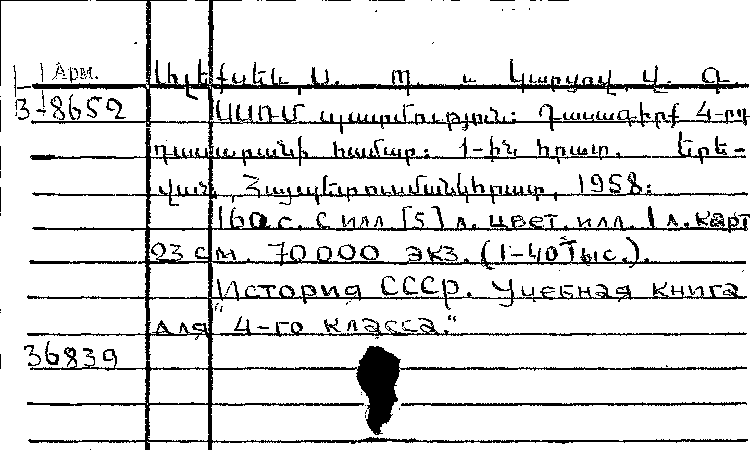 Арм. Ալեքսեև, Ս. Պ. և Կարցով, Վ. Գ.
3-8652 ՍՍՌՄ պատմություն: Դասագիրք 4-րդ
դասարանի համար: 1-ին հրատ. Երե-
վան, Հայպետուսմանկհրատ, 1958:
160 с. с илл. [5] л. цвет. илл. 1 л. карт
23 см. 70000 экз. (1-40 тыс.).
История СССР. Учебная книга
для "4-го класса."
36839